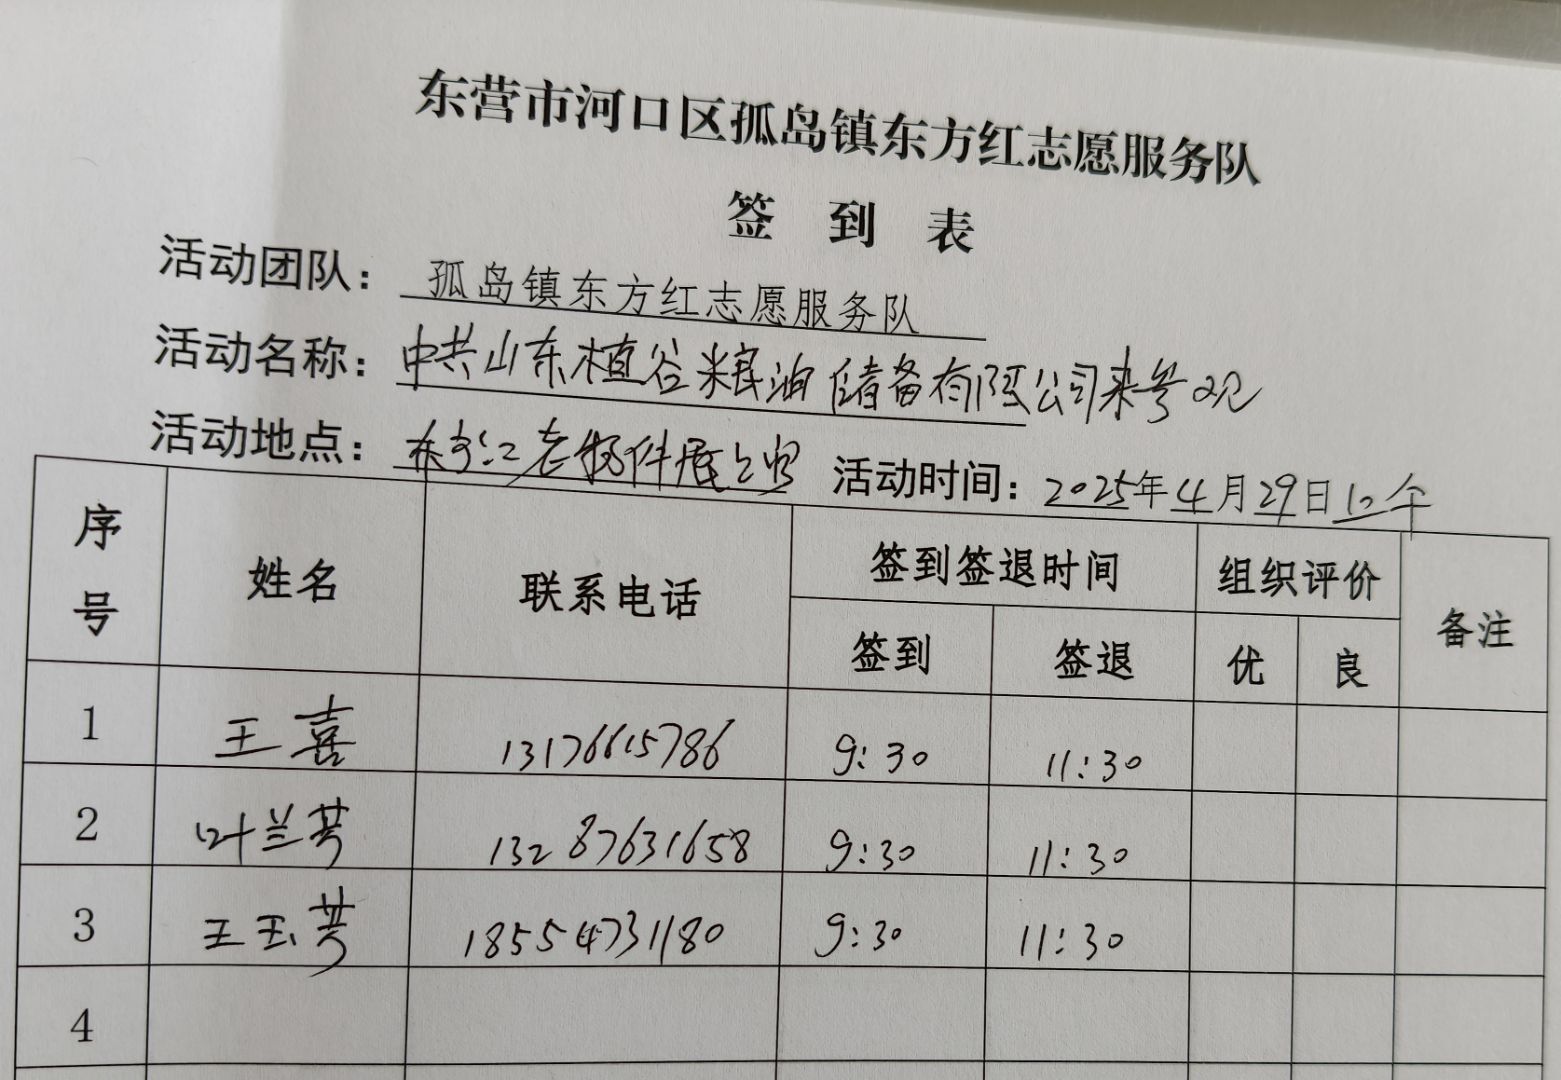 东营市河口区孤岛镇东方红志愿服务队
签 到 表
活动团队：孤岛镇东方红志愿服务队
活动名称：中共山东植谷粮油储备有限公司来参观
活动地点：东方红老物件展览馆 活动时间：2025年4月29日
序号 姓名 联系电话 签到签退时间 组织评价 备注
签到 签退 优 良
1 王喜 13176615786 9:30 11:30
2 叶兰芳 13287631658 9:30 11:30
3 王玉芳 18554731180 9:30 11:30
4